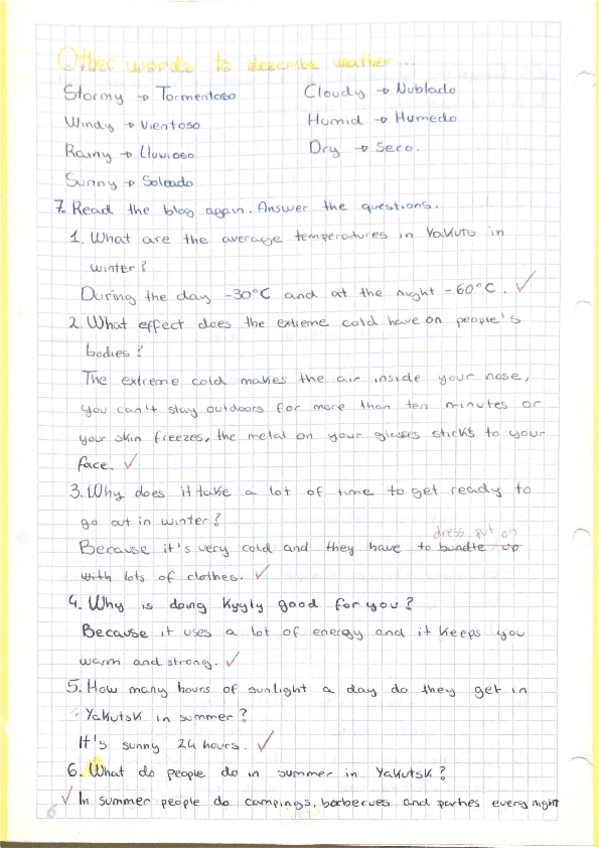 Other words to describe weather...
Stormy → Tormentoso
Cloudy → Nublado
Windy → Vientoso
Humid → Humedo
Rainy → Lluvioso
Dry → Seco.
Sunny → Soleado
7. Read the blog again. Answer the questions.
1. What are the average temperatures in Yakuto in
winter?
During the day -30°C and at the night -60°C. ✓
2. What effect does the extreme cold have on people's
bodies?
The extreme cold makes the air inside your nose,
you can't stay outdoors for more than ten minutes or
your skin freezes, the metal on your glasses sticks to your
face. ✓
3. Why does it take a lot of time to get ready to
go out in winter?
dress put on
Because it's very cold and they have to bundle up
with lots of clothes. ✓
4. Why is doing Kyyly good for you?
Because it uses a lot of energy and it keeps you
warm and strong. ✓
5. How many hours of sunlight a day do they get in
Yakutsk in summer?
It's sunny 24 hours. ✓
6. What do people do in summer in Yakutsk?
✓ In summer people do campings, barbecues and parties every night
6